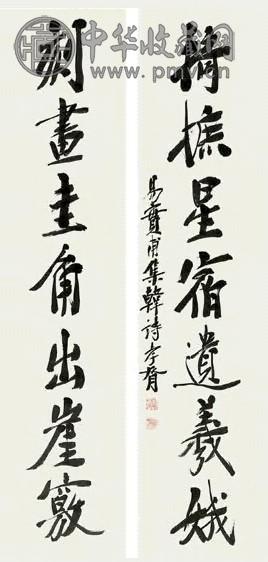 中华收藏网
www.pmv.cn
掎摭星宿遺羲娥
易實甫集韓詩孝胥
刻畫圭角出崖竅